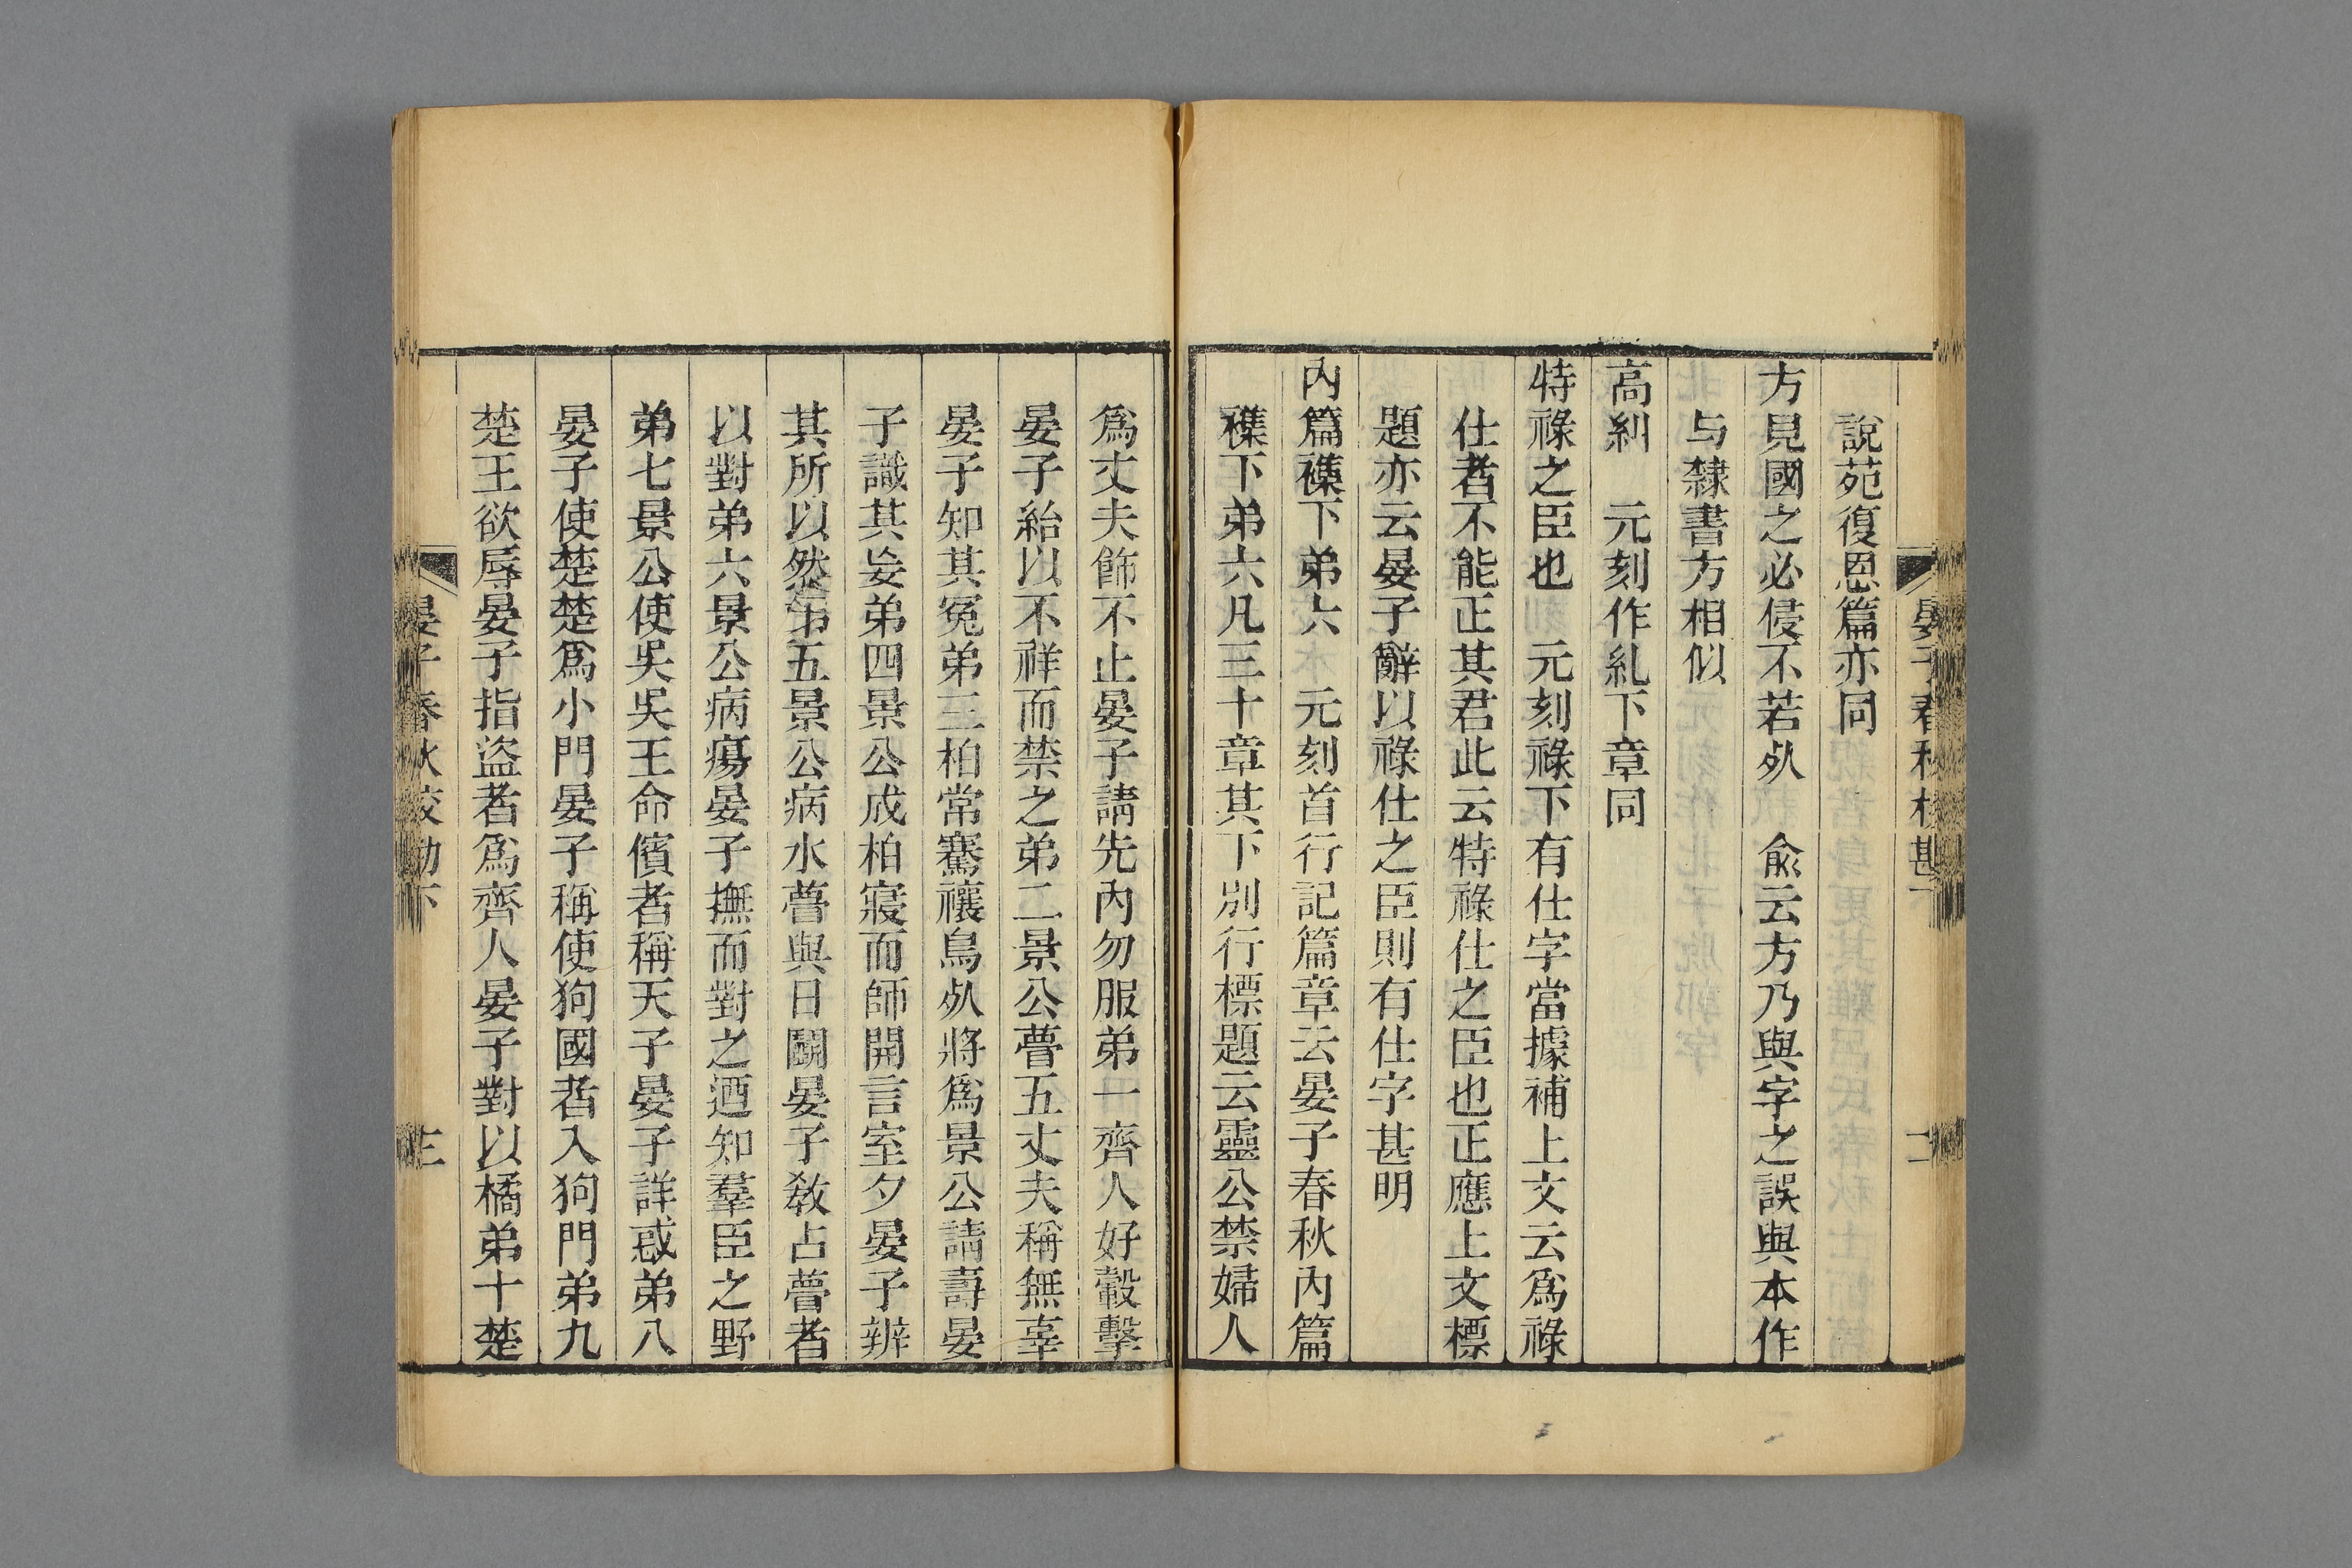 說苑復恩篇亦同
方見國之必侵不若㱙　俞云方乃與字之誤與本作
与隸書方相似
高糾　元刻作糺下章同
特祿之臣也　元刻祿下有仕字當據補上文云爲祿
仕者不能正其君此云特祿仕之臣也正應上文標
題亦云晏子辭以祿仕之臣則有仕字甚明
內篇襍下弟六　元刻首行記篇章云晏子春秋內篇
襍下弟六凡三十章其下別行標題云靈公禁婦人
爲丈夫飾不止晏子請先內勿服弟一齊人好轂擊
晏子紿以不祥而禁之弟二景公瞢五丈夫稱無辜
晏子知其冤弟三柏常騫禳鳥㱙將爲景公請壽晏
子識其妄弟四景公成柏寢而師開言室夕晏子辨
其所以然弟五景公病水瞢與日鬭晏子敎占瞢者
以對弟六景公病瘍晏子撫而對之迺知羣臣之野
弟七景公使吳吳王命儐者稱天子晏子詳惑弟八
晏子使楚楚爲小門晏子稱使狗國者入狗門弟九
楚王欲辱晏子指盜者爲齊人晏子對以橘弟十楚
晏子春秋校勘下